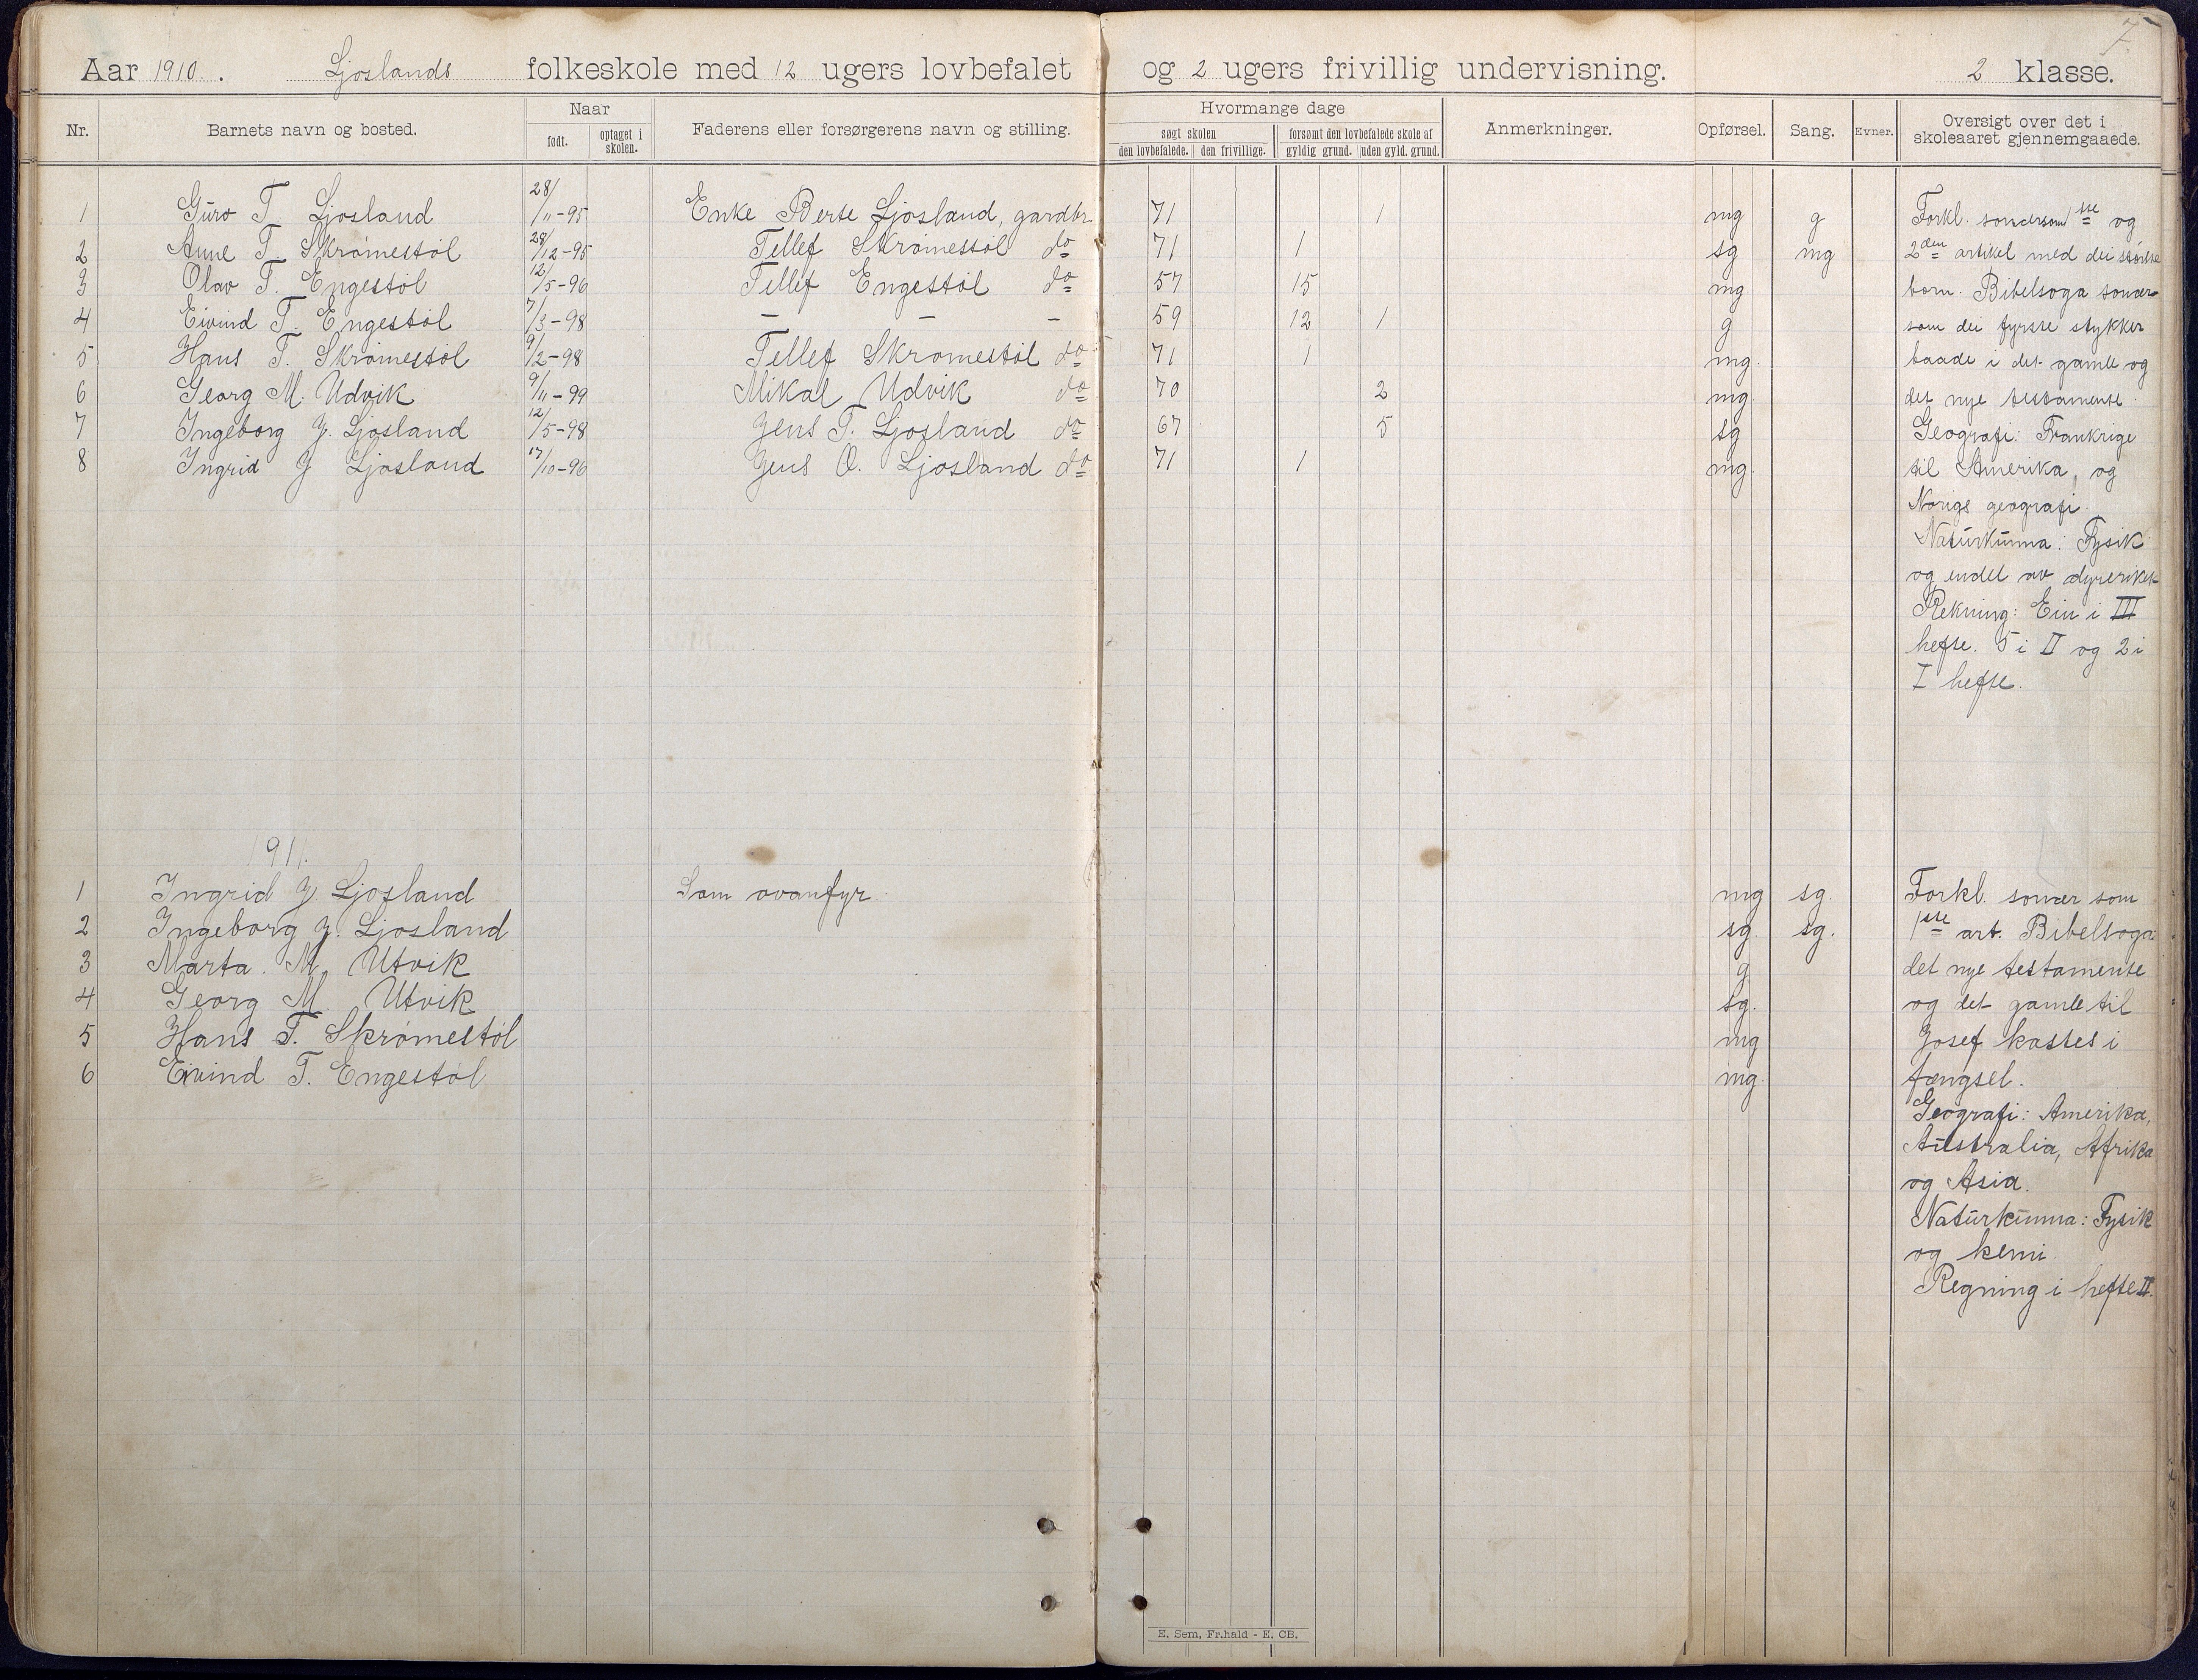 7.
Aar 1910. Ljoslands folkeskole med 12 ugers lovbefalet og 2 ugers frivillig undervisning. 2 klasse.
Nr. Barnets navn og bosted. Naar født. optaget i skolen. Faderens eller forsørgerens navn og stilling. Hvormange dage søgt skolen den lovbefalede. den frivillige. forsømt den lovbefalede skole af gyldig grund. uden gyld. grund. Anmerkninger. Opførsel. Sang. Evner. Oversigt over det i skoleaaret gjennemgaaede.
1 Guro T. Ljosland 28/11-95 Enke Berte Ljosland, gardbr. 71 1 mg g
2 Anne T. Skrømestøl 28/12-95 Tellef Skrømestøl do 71 1 sg mg
3 Olav T. Engestøl 12/5-96 Tellef Engestøl do 57 15 mg
4 Eivind T. Engestøl 7/3-98 — — — 59 12 1 g
5 Hans T. Skrømestøl 9/2-98 Tellef Skrømestøl do 71 1 mg
6 Georg M. Udvik 9/11-99 Mikal Udvik do 70 2 mg
7 Ingeborg J. Ljosland 12/5-98 Jens T. Ljosland do 67 5 sg
8 Ingrid J Ljosland 17/10-96 Jens O. Ljosland do 71 1 mg.
Forkl. sonærsom 1ste og
2den artikel med dei største
born. Bibelsoga sonær
som dei fyrste stykker
baade i det gamle og
det nye testamente.
Geografi: Frankrige
til Amerika, og
Norigs geografi.
Naturkunna: Fysik
og endel av dyreriket
Rekning: Ein i III
hefte. 5 i II og 2 i
I hefte.
1911.
1 Ingrid J Ljosland Som ovanfyr. mg sg.
2 Ingeborg J. Ljosland sg. sg.
3 Marta. M. Utvik g
4 Georg M. Utvik sg.
5 Hans T. Skrømestøl mg
6 Eivind T. Engestøl mg.
Forkl. sonær som
1ste art. Bibelsoga:
det nye testamente
og det gamle til
Josef kastes i
fængsel.
Geografi: Amerika,
Australia, Afrika
og Asia.
Naturkunna: Fysik
og kemi
Regning i hefte II.
E. Sem, Fr.hald - E. CB.